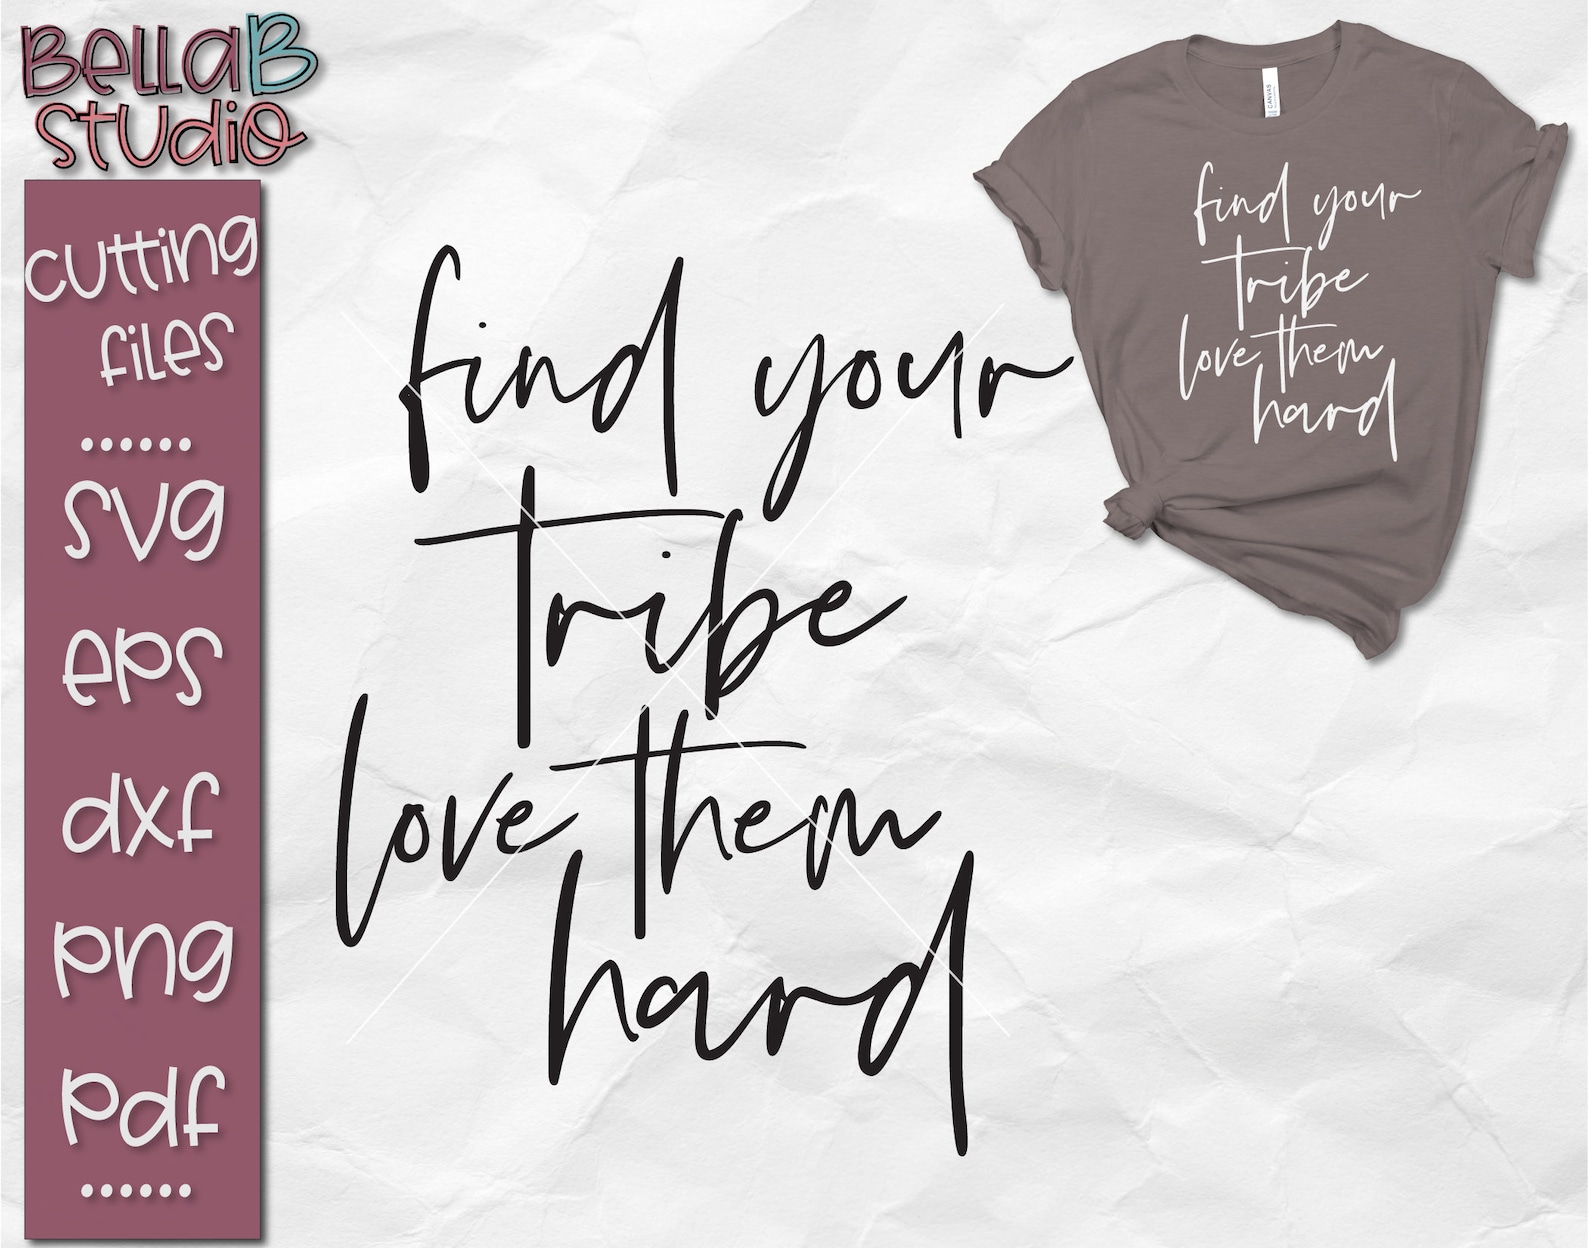 BellaB
Studio
cutting
files
......
svg
eps
dxf
png
pdf
......
find your
tribe
love them
hard
CANVAS
find your
tribe
love them
hard